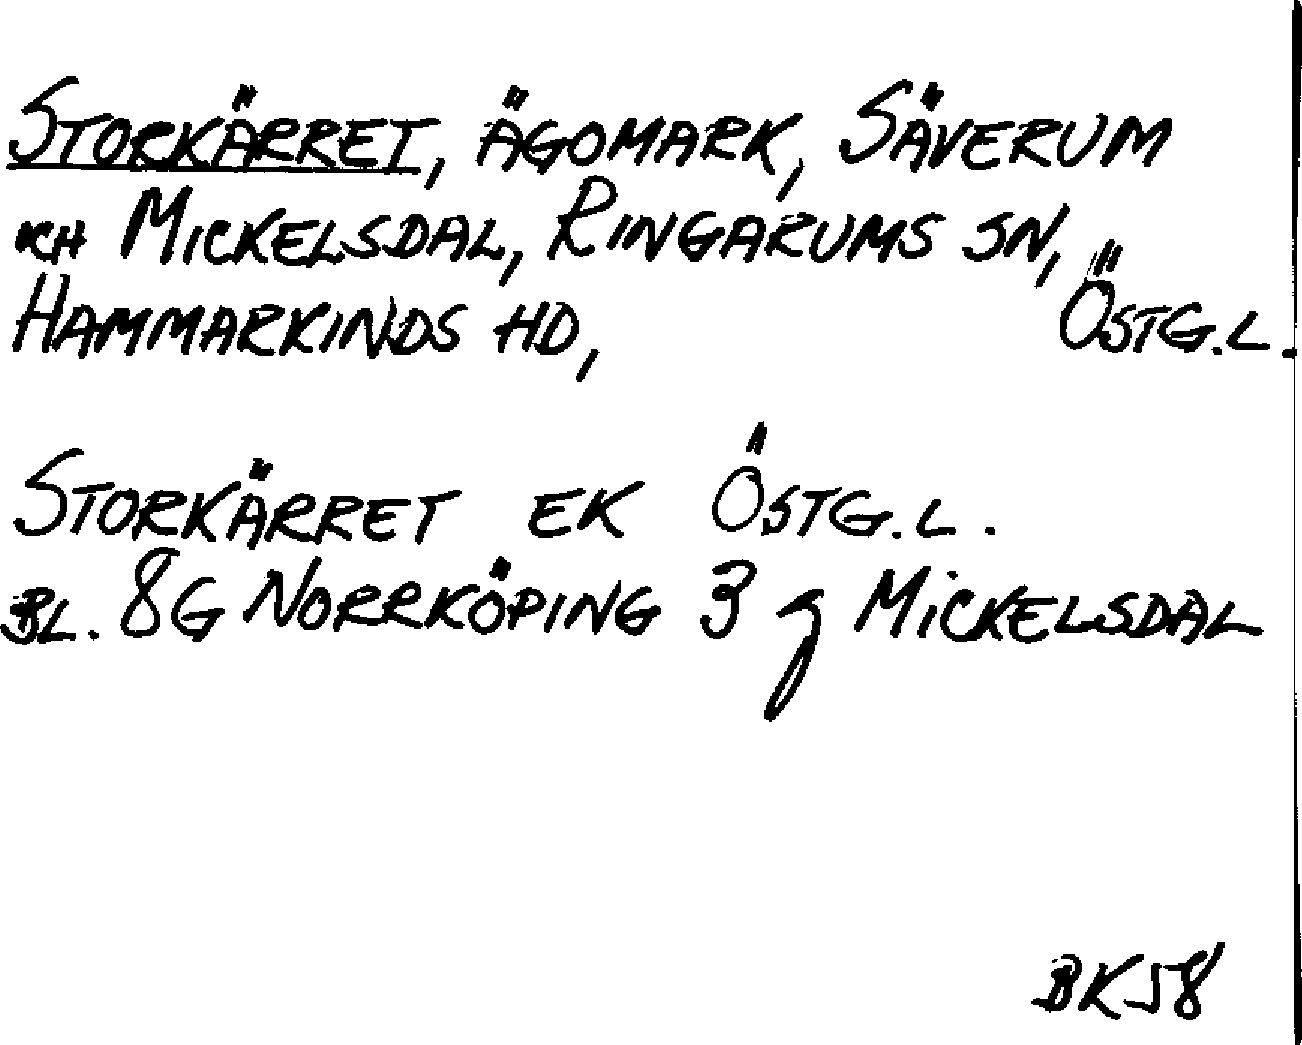 STORKÄRRET, ÄGOMARK, SÄVERUM
OCH MICKELSDAL, RINGARUMS SN,
HAMMARKINDS HD, ÖSTG.L.
STORKÄRRET EK ÖSTG.L.
BL. 8G NORRKÖPING 3 g MICKELSDAL
BK58